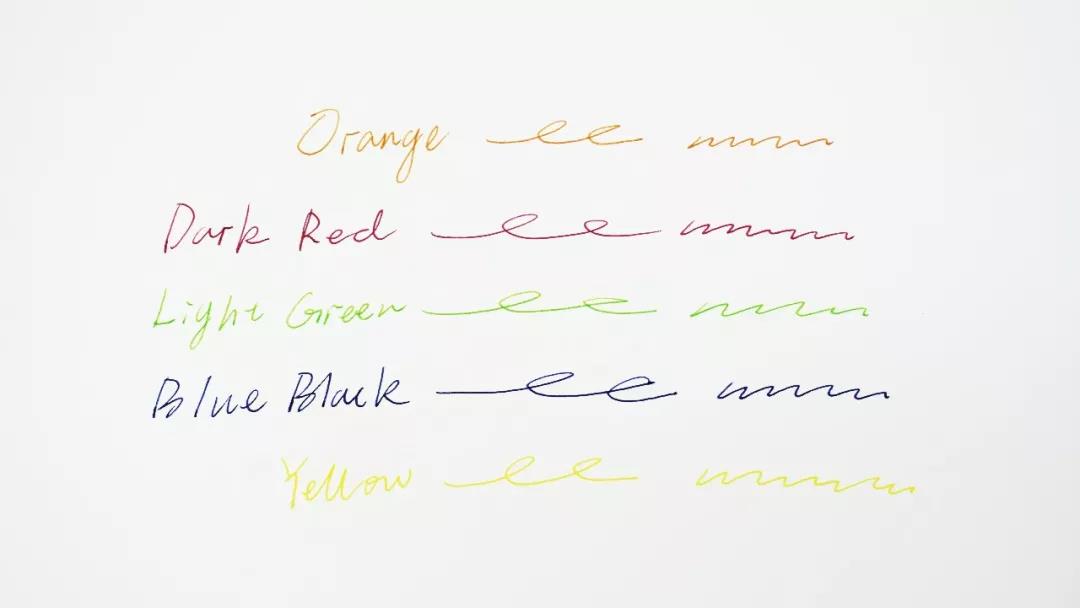 Orange
Dark Red
Light Green
Blue Black
Yellow